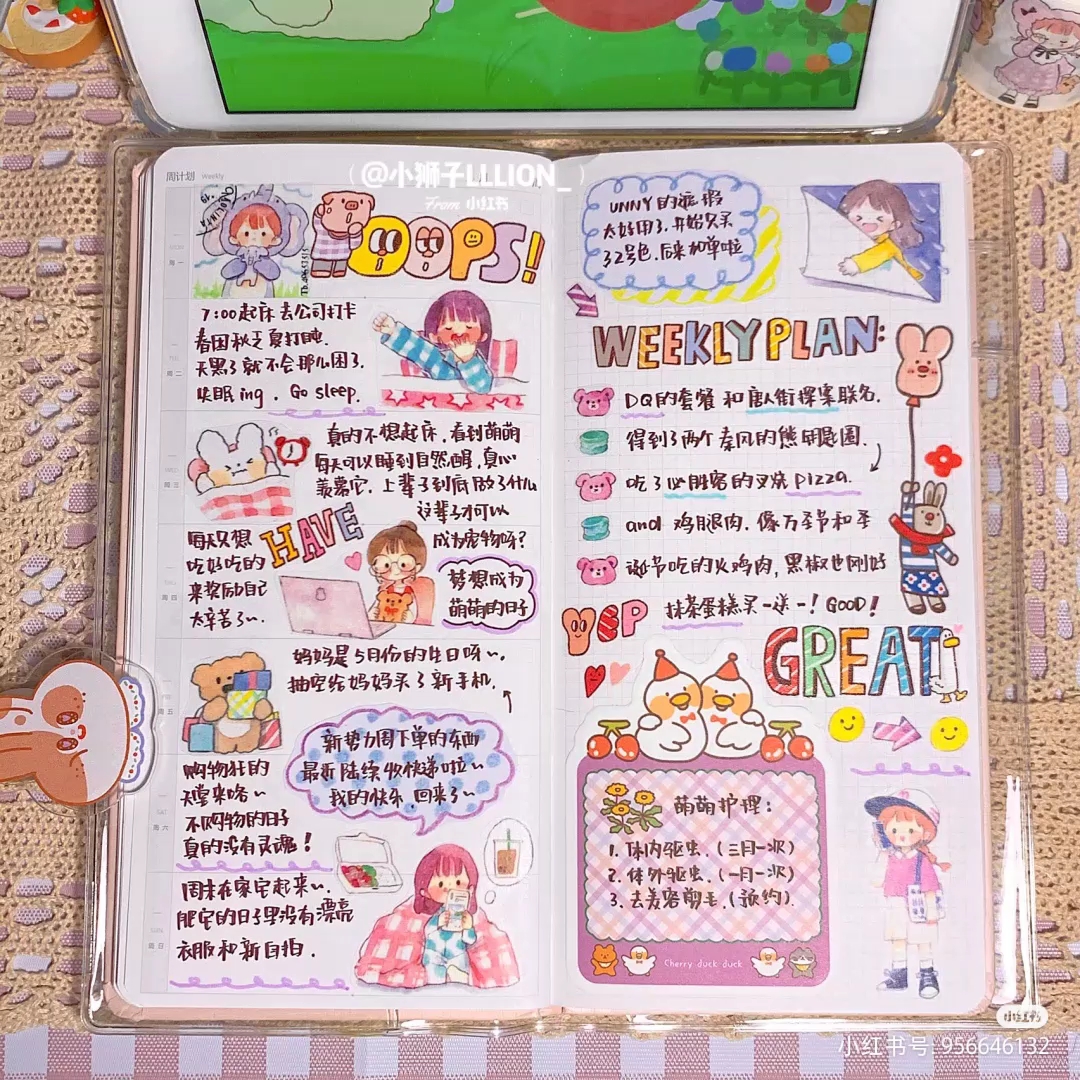 @小狮子LLLION_
From 小红书
周计划 Weekly
OOPS!
7:00起床去公司打卡
春困秋乏夏打盹.
天黑了就不会那么困了.
失眠 ing. Go sleep.
真的不想起床,看到萌萌
每天可以睡到自然醒,真心
羡慕它.上辈子到底做了什么
这辈子才可以
成为宠物呀?
每天只想
吃好吃的
来奖励自己
太辛苦了~.
HAVE
梦想成为
萌萌的日子
妈妈是5月份的生日呀~.
抽空给妈妈买了新手机.
新势力周下单的东西
最近陆续收快递啦~
我的快乐.回来了~
购物狂的
天堂来咯~
不购物的日子
真的没有灵魂!
周末在家宅起来~.
肥宅的日子里没有漂亮
衣服和新自拍.
周一
周二
周三
周四
周五
周六
周日
UNNY的遮瑕
太好用了.开始只买
32号色.后来加单啦
WEEKLY PLAN:
DQ的套餐和唐人街探案联名.
得到了两个秦风的熊钥匙圈.
吃了必胜客的叉烧pizza.
and 鸡腿肉.像万圣节和圣
诞节吃的火鸡肉,黑椒也刚好
抹茶蛋糕买一送一! GOOD!
YEP
GREAT
萌萌护理:
1. 体内驱虫.(三月一次)
2. 体外驱虫.(一月一次)
3. 去美容剪毛.(预约).
Cherry duck duck
小红书
小红书号: 956646132